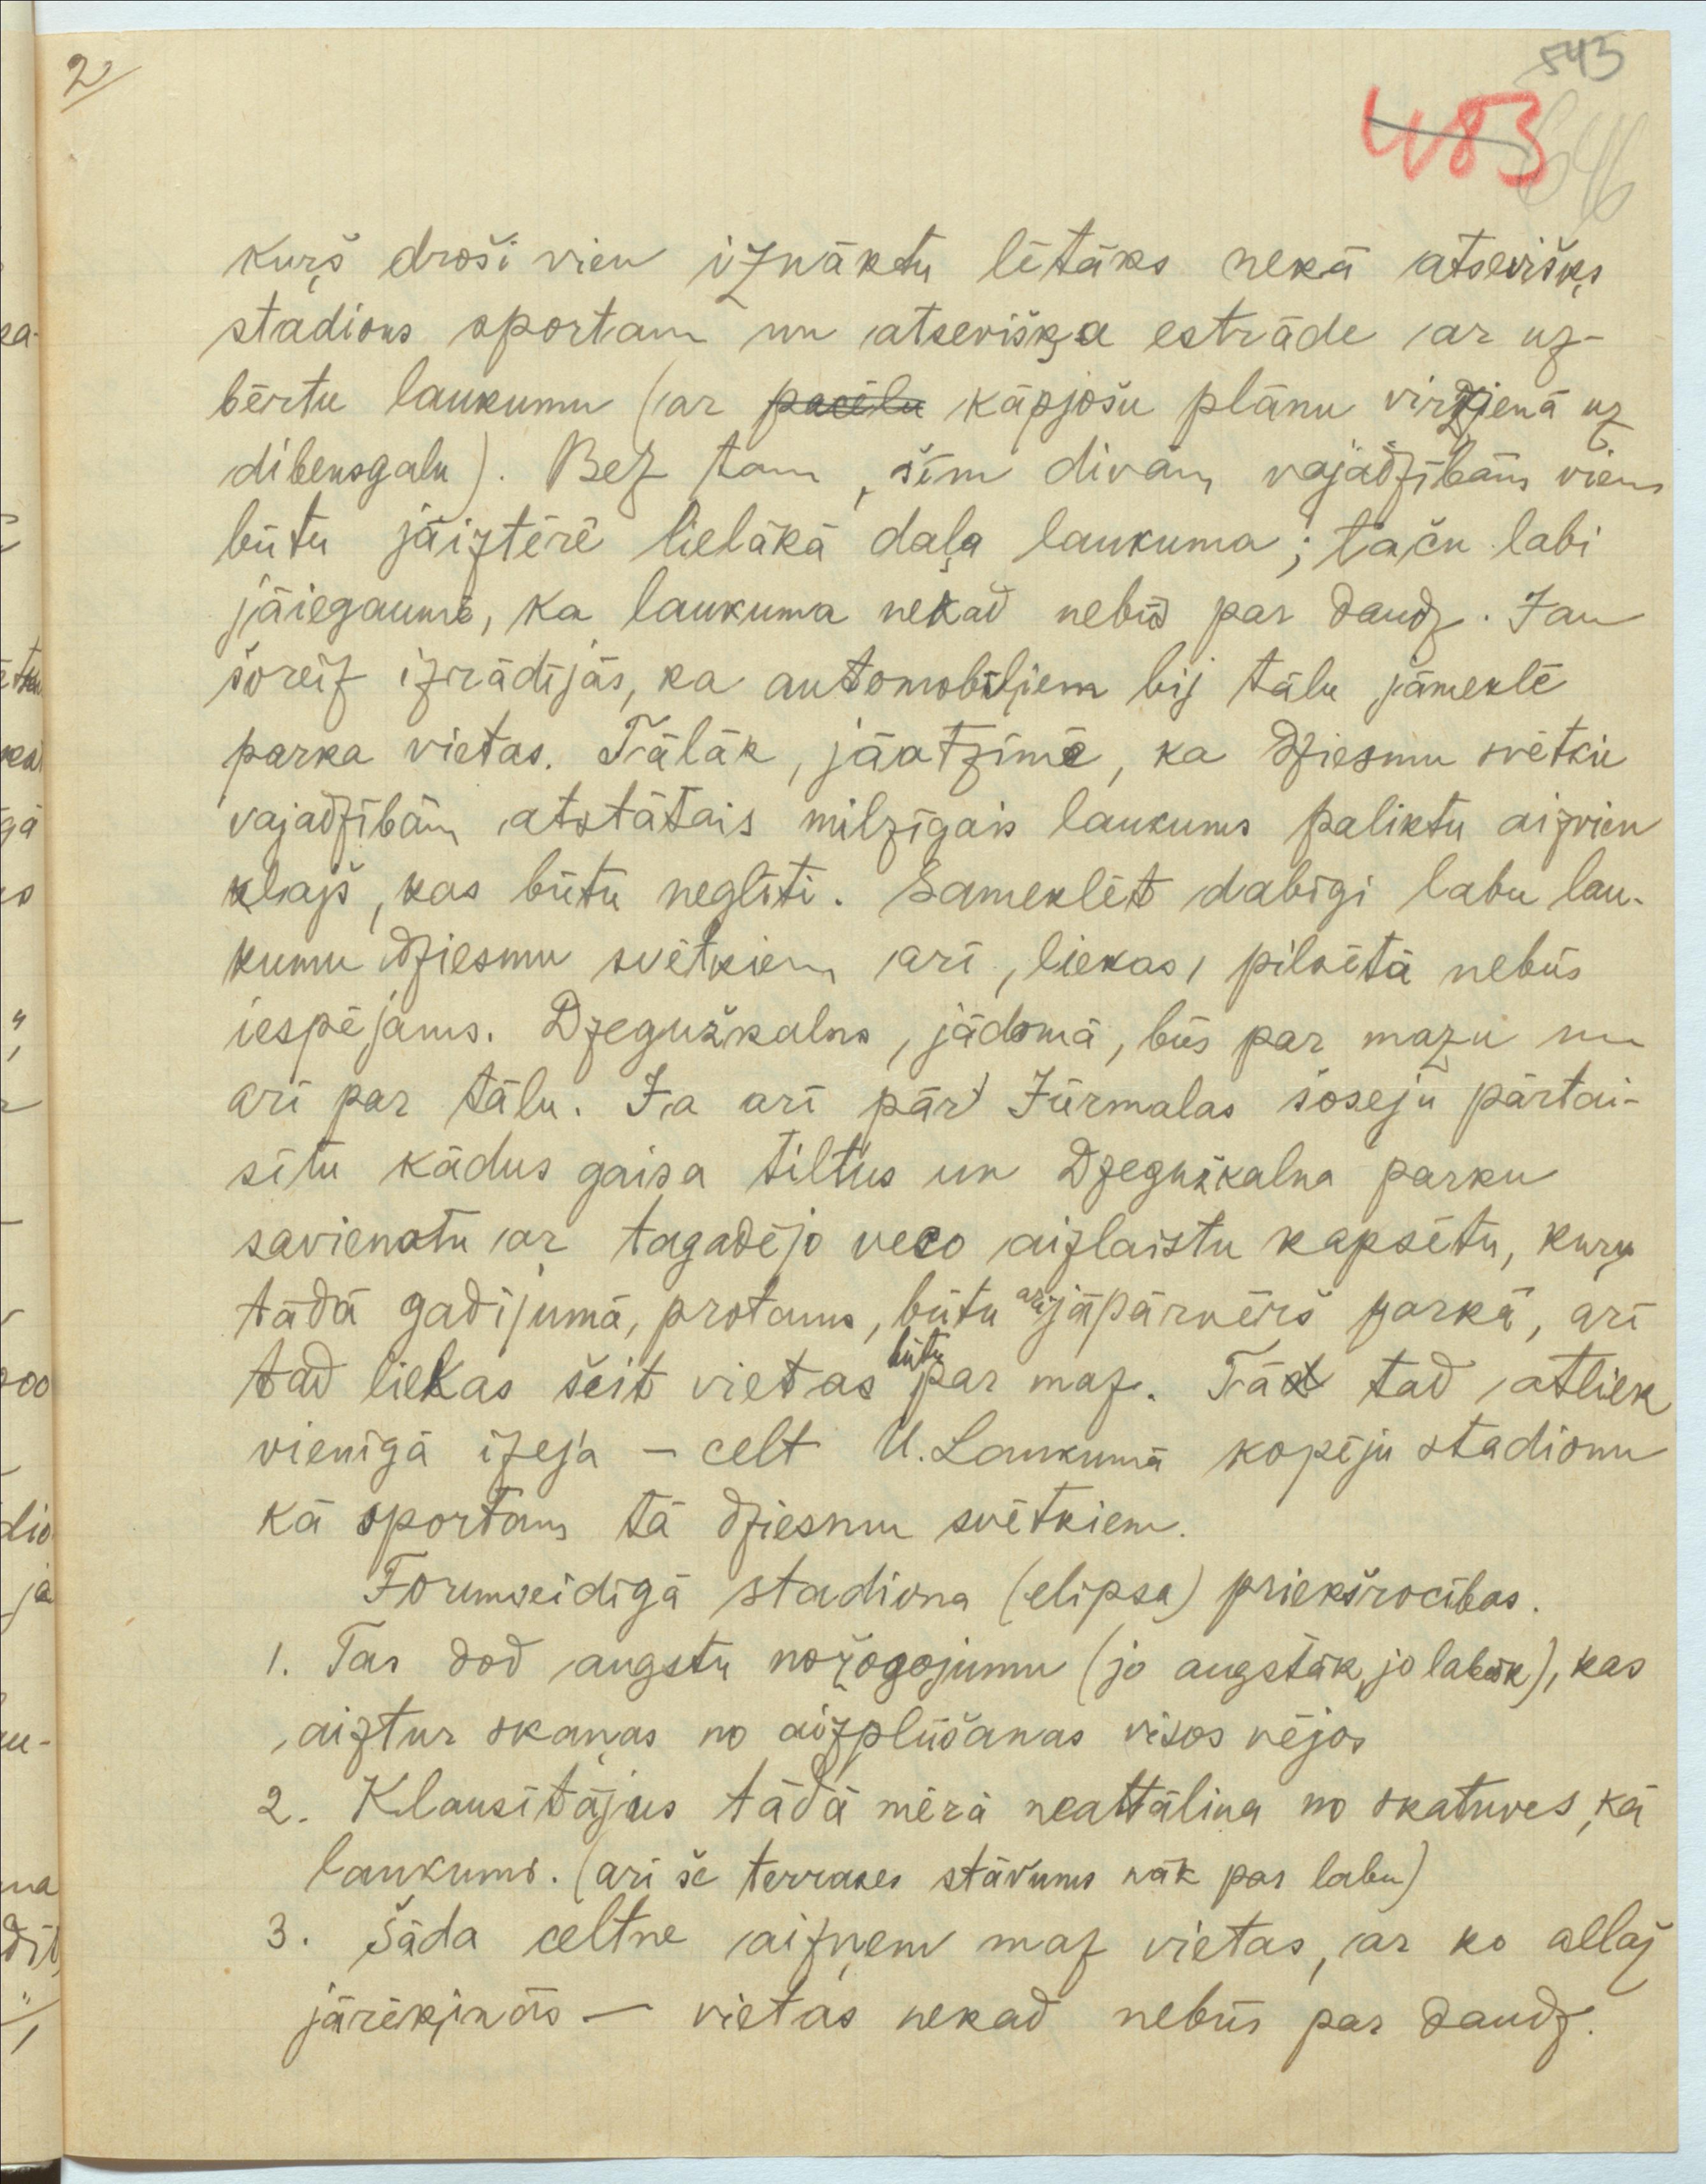 2
543
483
546
kuŗš droši vien iznāktu lētāks nekā atsevišķs
stadions sportam un atsevišķa estrāde ar uz-
bērtu laukumu (ar pacēlu kāpjošu plānu virzienā uz
dibensgalu). Bez tam, šīm divām vajadzībām viem
būtu jāiztērē lielākā daļa laukuma; taču labi
jāiegaumē, ka laukuma nekad nebūs par daudz. Jau
šoreiz izrādījās, ka automobiļiem bij tālu jāmeklē
parka vietas. Tālāk, jāatzīmē, ka dziesmu svētku
vajadzībām atstātais milzīgais laukums paliktu aizvien
klajš, kas būtu neglīti. Sameklēt dabīgi labu lau-
kumu dziesmu svētkiem arī, liekas, pilsētā nebūs
iespējams. Dzegužkalns, jādomā, būs par mazu un
arī par tālu. Ja arī pār Jūrmalas šoseju pārtai-
sītu kādus gaisa tiltus un Dzegužkalna parku
savienotu ar tagadējo veco aizlaistu kapsētu, kuŗu
tādā gadījumā, protams, būtu arī jāpārvērš parkā, arī
tad liekas šeit vietas būtu par maz. Tād tad atliek
vienīgā izeja – celt U. Laukumā kopēju stadionu
kā sportam tā dziesmu svētkiem.
Forumveidīgā stadiona (elipsa) priekšrocības.
1. Tas dod augstu nožogojumu (jo augstāk, jo labāk), kas
aiztur skaņas no aizplūšanas visos vējos
2. Klausītājus tādā mērā neattālina no skatuves, kā
laukums. (arī še terrases stāvums nāk par labu)
3. Šāda celtne aizņem maz vietas, ar ko allaž
jārēķinās – vietas nekad nebūs par daudz.